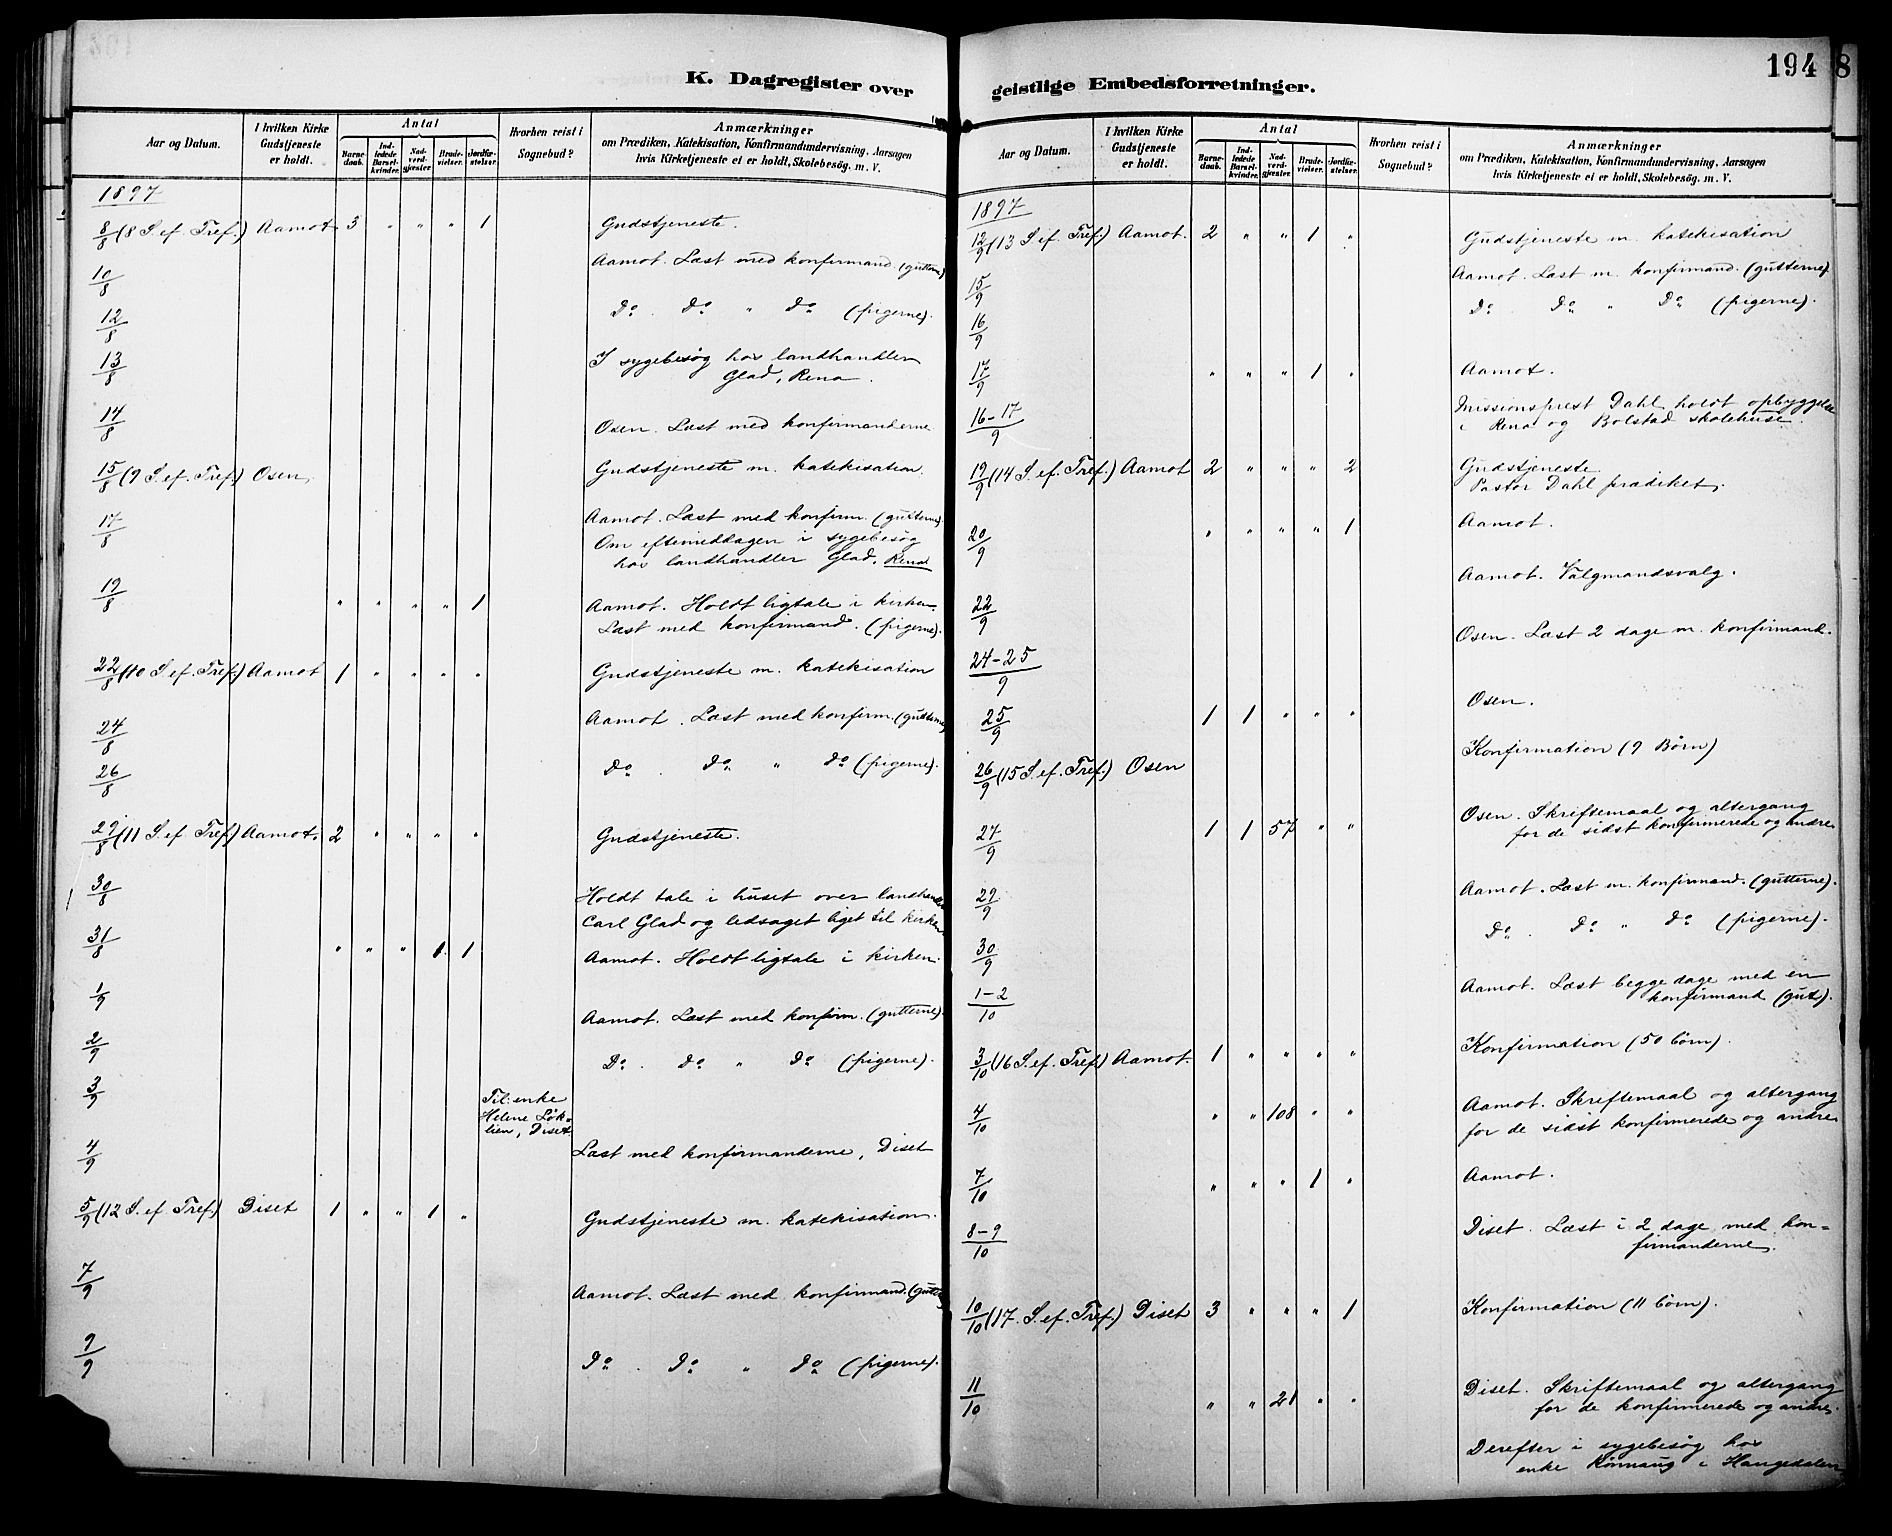 K. Dagregister over
Aar og Datum. I hvilken Kirke Gudstjeneste er holdt. Antal Barnedaab. Indledede Barselkvinder. Nadverdgjæster. Brudevielser. Jordfæstelser. Hvorhen reist i Sognebud? Anmærkninger om Prædiken, Katekisation, Konfirmandundervisning, Aarsagen hvis Kirketjeneste ei er holdt, Skolebesøg. m. V.
1897
8/8 (8 S. ef. Tref.) Aamot 3 " " " 1 Gudstjeneste.
10/8 Aamot. Læst med konfirmand. (gutterne)
12/8 Do. Do " Do (pigerne).
13/8 I sygebesøg hos landhandler
Glad, Rena.
14/8 Osen. Læst med konfirmanderne
15/8 (9 S. ef. Tref.) Osen. Gudstjeneste m. katekisation.
17/8 Aamot. Læst med konfirm. (gutterne).
Om eftemiddagen i sygebesøg
hos landhandler Glad, Rena
19/8 " " " " 1 Aamot. Holdt ligtale i kirken.
Læst med konfirmand. (pigerne).
22/8 (10 S. ef. Tref.) Aamot 1 " " " " Gudstjeneste m. katekisation
24/8 Aamot. Læst med konfirm. (gutterne)
26/8 Do. Do " Do (pigerne).
29/8 (11 S. ef. Tref.) Aamot. 2 " " " " Gudstjeneste.
30/8 Holdt tale i huset over landhandler
Carl Glad og ledsaget liget til kirken
31/8 " " " 1 1 Aamot. Holdt ligtale i kirken.
1/9 Aamot. Læst med konfirm. (gutterne).
2/9 Do. Do " Do (pigerne).
3/9 Til enke
Helene Løk-
lien, Diset
4/9 Læst med konfirmanderne, Diset
5/9 (12 S. ef Tref.) Diset 1 " " 1 " Gudstjeneste m. katekisation.
7/9 Aamot. Læst med konfirmand. (gutterne)
9/9 Do. Do " Do (pigerne).
geistlige Embedsforretninger.
194
8
Aar og Datum. I hvilken Kirke Gudstjeneste er holdt. Antal Barnedaab. Indledede Barselkvinder. Nadverdgjæster. Brudevielser. Jordfæstelser. Hvorhen reist i Sognebud? Anmærkninger om Prædiken, Katekisation, Konfirmandundervisning, Aarsagen hvis Kirketjeneste ei er holdt, Skolebesøg. m. V.
1897
12/9 (13 S. ef. Tref.) Aamot. 2 " " 1 " Gudstjeneste m. katekisation
15/9 Aamot. Læst m. konfirmand. (gutterne).
16/9 Do. Do " Do (pigerne).
17/9 " " " 1 " Aamot.
16-17/9 Missionsprest Dahl holdt opbyggelse
i Rena og Bolstad skolehuse.
19/9 (14 S. ef. Tref.) Aamot 2 " " " 2 Gudstjeneste
Pastor Dahl prædiket.
20/9 " " " " 1 Aamot.
22/9 Aamot. Valgmandsvalg.
24-25/9 Osen. Læst 2 dage m. konfirmand.
25/9 1 1 " " " Osen.
26/9 (15 S. ef. Tref.) Osen Konfirmation (9 Børn)
27/9 1 1 57 " " Osen. Skriftemaal og altergang
for de sidst konfirmerede og andre
29/9 Aamot. Læst m. konfirmand. (gutterne).
30/9 Do. Do " Do (pigerne).
1-2/10 Aamot. Læst begge dage med en
konfirmand (gut).
3/10 (16 S. ef. Tref.) Aamot. 1 " " " " Konfirmation (50 börn).
4/10 " " 108 " " Aamot. Skriftemaal og altergang
for de sidst konfirmerede og andre
7/10 " " " 1 " Aamot.
8-9/10 Diset. Læst i 2 dage med kon-
firmanderne.
10/10 (17. S. ef. Tref.) Diset 3 " " " 1 Konfirmation (11 börn).
11/10 " " 21 " " Diset. Skriftemaal og altergang
for de konfirmerede og andre.
Derefter i sygebesøg hos
enke Rønnaug i Haugedalen